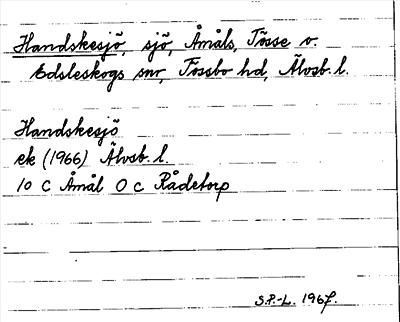 Handskesjö, sjö, Åmåls, Tösse o.
Edsleskogs snr, Tössbo hd, Älvsb. l.
Handskesjö
ek (1966) Älvsb. l.
10 C Åmål 0 c Rådetorp
S.P.-L. 1967.